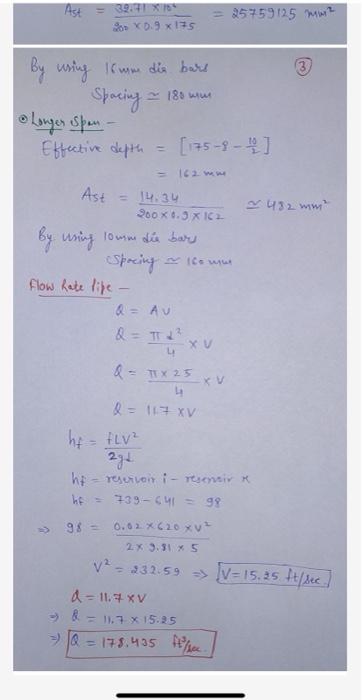 Ast = 32.71 × 10⁶ / 200 × 0.9 × 175 = 25759125 mm²
By using 16 mm dia bars
③
Spacing ≃ 180 mm
⊙ Longer Span –
Effective depth = [175 - 8 - 10/2]
= 162 mm
Ast = 14.34 / 200 × 0.9 × 162 ≃ 492 mm²
By using 10 mm dia bars
Spacing ≃ 160 mm
Flow Rate Pipe –
Q = AV
Q = πd²/4 × V
Q = π × 25 / 4 × V
Q = 11.7 × V
hf = fLV² / 2gd
hf = reservoir i - reservoir k
hf = 739 - 641 = 98
⇒ 98 = 0.02 × 620 × V² / 2 × 9.81 × 5
V² = 232.59 ⇒ V = 15.25 ft/sec.
Q = 11.7 × V
⇒ Q = 11.7 × 15.25
⇒ Q = 178.435 ft³/sec.